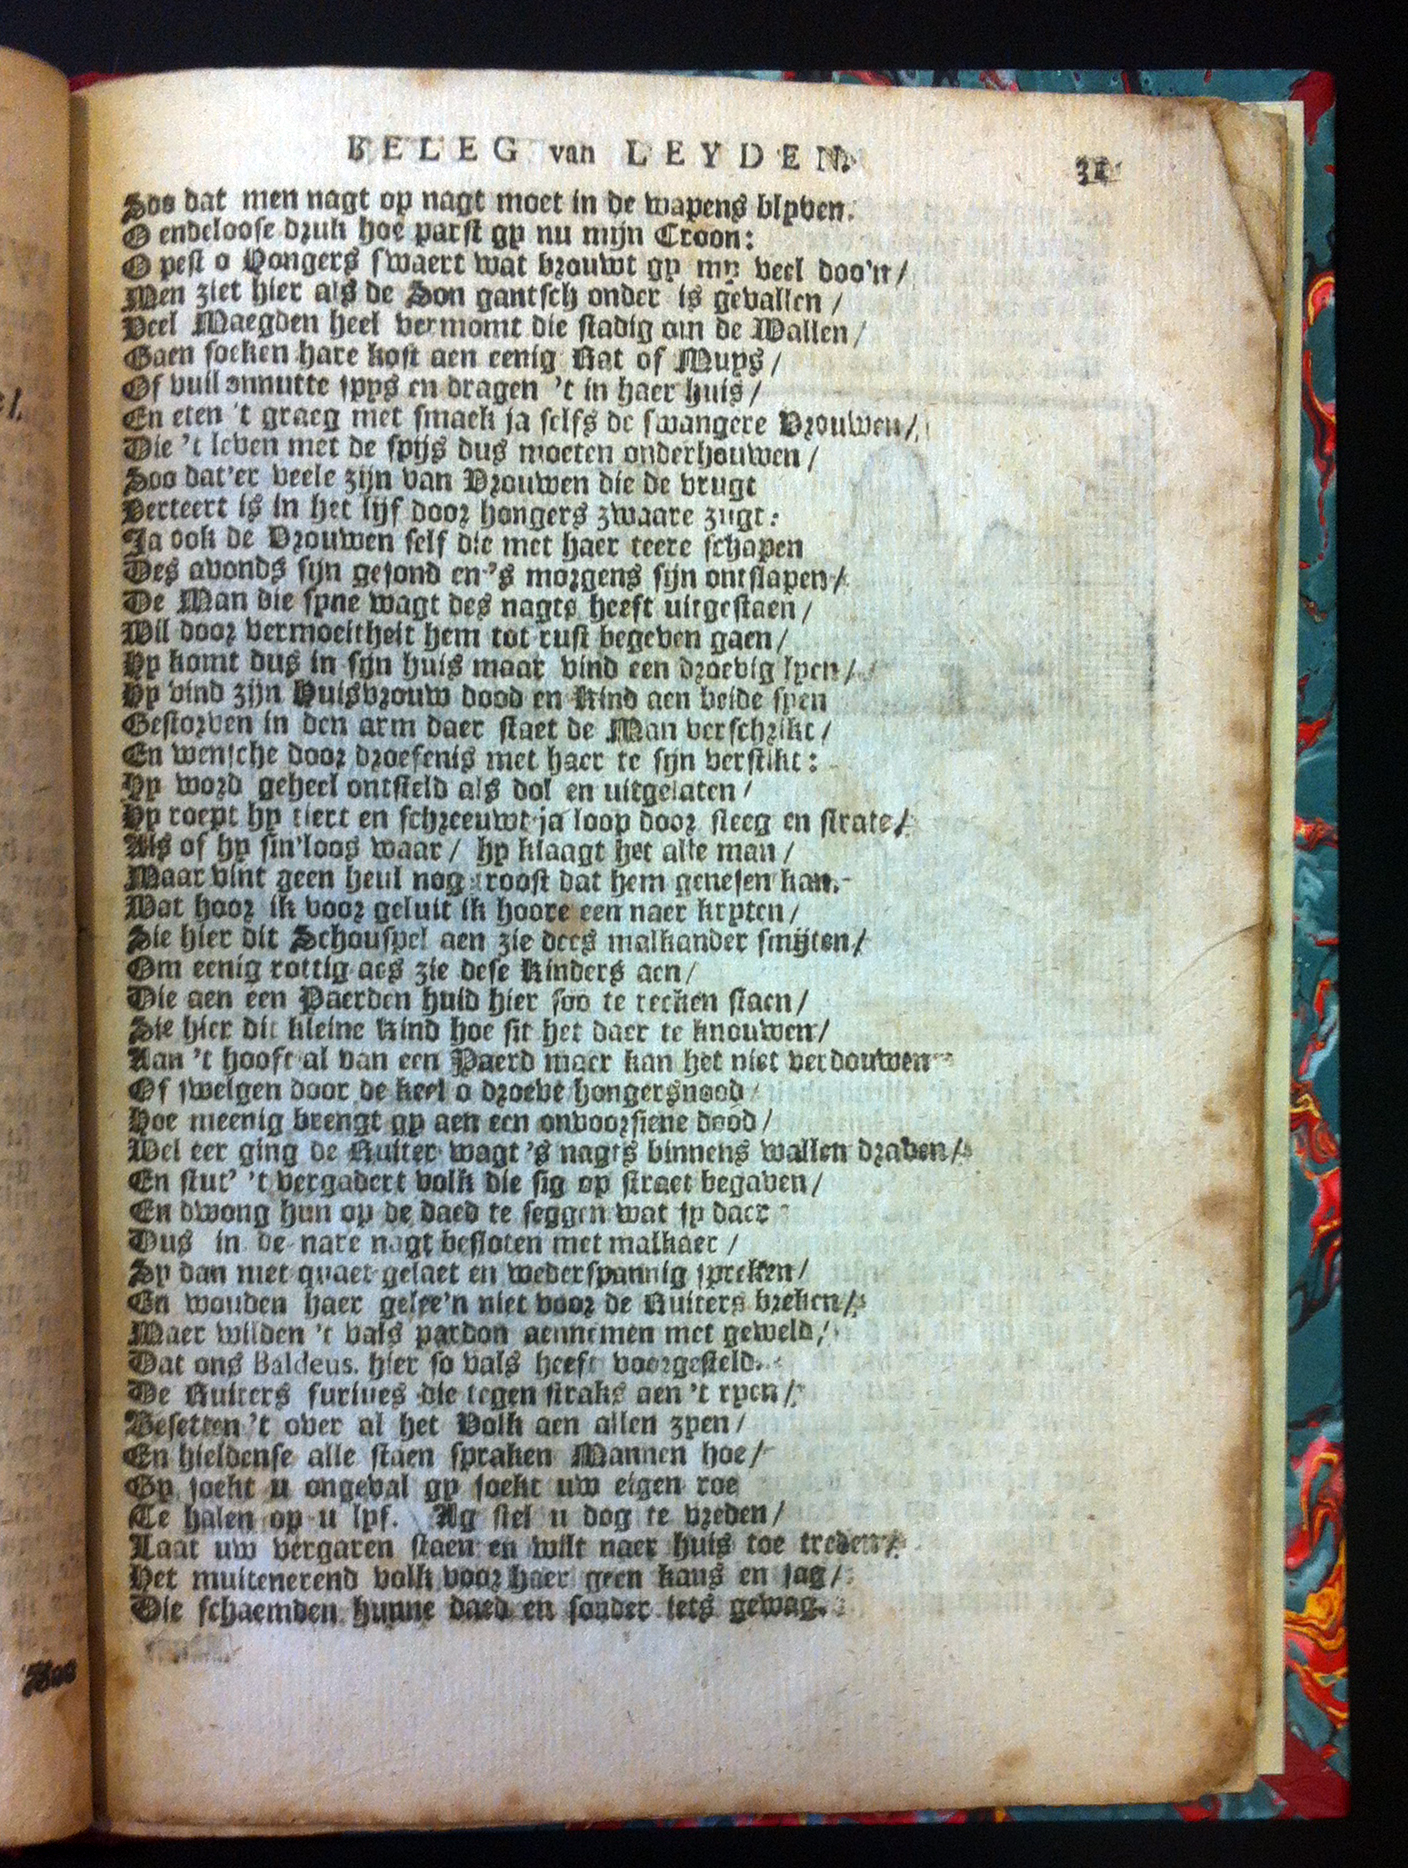 BELEG van LEYDEN.
Soo dat men nagt op nagt moet in de wapens blyven.
O endeloose druk hoe parst gy nu mijn Croon:
O pest o Hongers swaert wat brouwt gy my veel doo'n /
Men ziet hier als de Son gantsch onder is gevallen /
Veel Maegden heel vermomt die stadig om de Wallen /
Gaen soeken hare kost aen eenig Rat of Muys /
Of vuil onnutte spys en dragen 't in haer huis /
En eten 't graeg met smaek ja selfs de swangere Vrouwen /
Die 't leven met de spijs dus moeten onderhouwen /
Soo dat'er veele zijn van Vrouwen die de vrugt
Verteert is in het lijf door hongers zwaare zugt:
Ja ook de Vrouwen self die met haer teere schapen
Des avonds sijn gesond en 's morgens sijn ontslapen /
De Man die syne wagt des nagts heeft uitgestaen /
Wil door vermoeitheit hem tot rust begeven gaen /
Hy komt dus in sijn huis maar vind een droevig lyen /
Hy vind zijn Huisvrouw dood en Kind aen beide syen
Gestorven in den arm daer staet de Man verschrikt /
En wensche door droefenis met haer te sijn verstikt:
Hy word geheel ontsteld als dol en uitgelaten /
Hy roept hy tiert en schreeuwt ja loop door steeg en strate /
Als of hy sin'loos waar / hy klaagt het alle man /
Maar vint geen heul nog troost dat hem genesen kan.
Wat hoor ik voor geluit ik hoore een naer kryten /
Sie hier dit Schouspel aen zie dees malkander smijten /
Om eenig rottig aes zie dese Kinders aen /
Die aen een Paerden huid hier soo te recken staen /
Sie hier dit kleine Kind hoe sit het daer te knouwen /
Aan 't hooft al van een Paerd maer kan het niet verdouwen
Of swelgen door de keel o droeve hongersnood /
Hoe meenig brengt gy aen een onvoorsiene dood /
Wel eer ging de Ruiter wagt 's nagts binnens wallen draven /
En stut' 't vergadert volk die sig op straet begaven /
En dwong hun op de daed te seggen wat sy daer
Dus in de nare nagt besloten met malkaer /
Sy dan met quaet gelaet en wederspannig spreken /
En wouden haer gelee'n niet voor de Ruiters breken /
Maer wilden 't vals pardon aennemen met geweld /
Dat ons Baldeus. hier so vals heeft voorgesteld.
De Ruiters furiues die tegen straks aen 't ryen /
Besetten 't over al het Volk aen allen zyen /
En hieldense alle staen spraken Mannen hoe /
Gy soekt u ongeval gy soekt uw eigen roe
Te halen op u lyf. Ag stel u dog te vreden /
Laat uw vergaren staen en wilt naer huis toe treden /
Het muitenerend volk voor haer geen kans en sag /
Die schaemden hunne daed en sonder iets gewag.
Soo